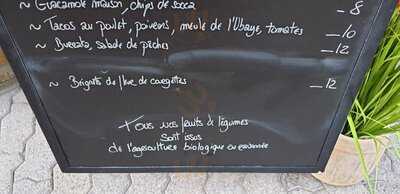 ~ Guacamole maison, chips de socca _ 8
~ Tacos au poulet, poivrons, meule de l'Ubaye, tomates _ 10
~ Burrata, salade de pêches _ 12
~ Beignets de fleur de courgettes _ 12
Tous nos fruits & légumes
sont issus
de l'agriculture biologique ou raisonnée